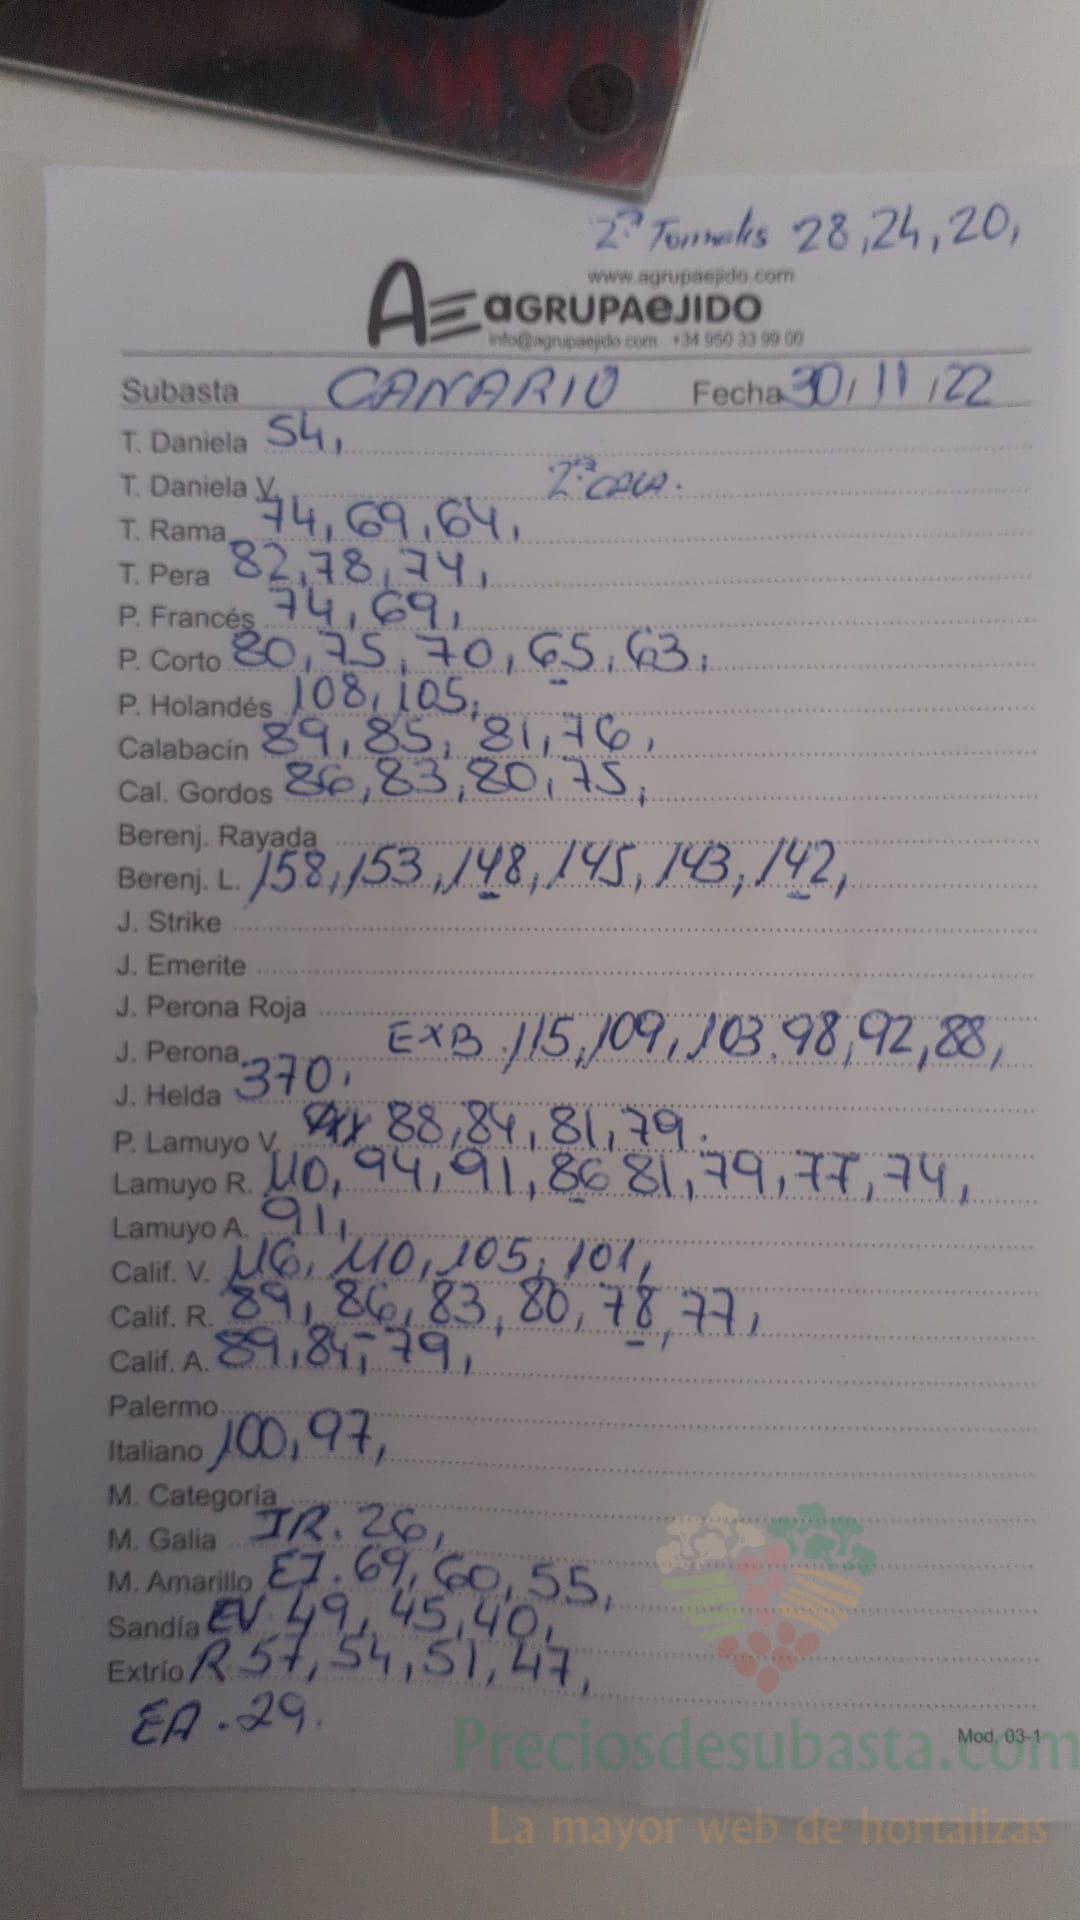 2ª Tomates 28,24,20,
www.agrupaejido.com
AE aGRUPAeJIDO
info@agrupaejido.com +34 950 33 99 00
Subasta CANARIO Fecha 30/11/22
T. Daniela 54,
T. Daniela V. 2ª CALA.
T. Rama 74,69,64,
T. Pera 82,78,74,
P. Francés 74,69,
P. Corto 80,75,70,65,63,
P. Holandés 108,105,
Calabacín 89,85,81,76,
Cal. Gordos 86,83,80,75,
Berenj. Rayada
Berenj. L. 158,153,148,145,143,142,
J. Strike
J. Emerite
J. Perona Roja
J. Perona EXB.115,109,103.98,92,88,
J. Helda 370,
P. Lamuyo V. 88,84,81,79.
Lamuyo R. 110,94,91,86 81,79,77,74,
Lamuyo A. 91,
Calif. V. 116,110,105,101,
Calif. R. 89,86,83,80,78,77,
Calif. A. 89,84,79,
Palermo
Italiano 100,97,
M. Categoría
M. Galia IR.26,
M. Amarillo EJ.69,60,55,
Sandía EV 49,45,40,
Extrío R 57,54,51,47,
EA.29.
Mod. 03-1
Preciosdesubasta.com
La mayor web de hortalizas